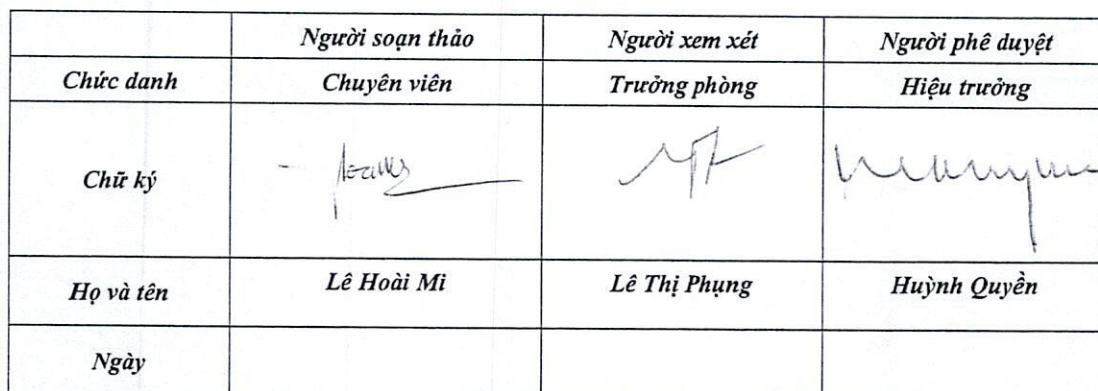 Người soạn thảo Người xem xét Người phê duyệt
Chức danh Chuyên viên Trưởng phòng Hiệu trưởng
Chữ ký
Họ và tên Lê Hoài Mi Lê Thị Phụng Huỳnh Quyền
Ngày